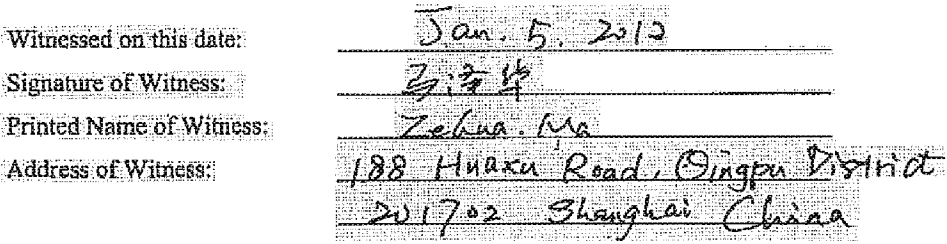 Witnessed on this date: Jan. 5. 2012
Signature of Witness: 马泽华
Printed Name of Witness: Zehua. Ma
Address of Witness: 188 Huaxu Road, Qingpu District
201702 Shanghai China